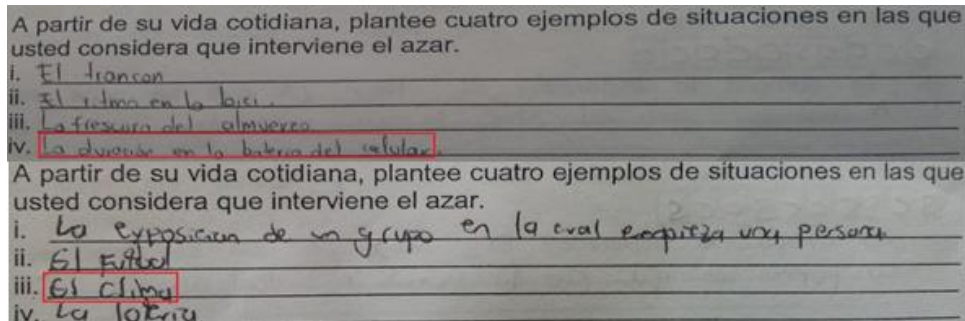 A partir de su vida cotidiana, plantee cuatro ejemplos de situaciones en las que
usted considera que interviene el azar.
i. El trancon
ii. El ritmo en la bici.
iii. La frescura del almuerzo
iv. La duración en la bateria del celular.
A partir de su vida cotidiana, plantee cuatro ejemplos de situaciones en las que
usted considera que interviene el azar.
i. La exposicion de un grupo en la cual empieza una persona
ii. El Futbol
iii. El clima
iv. La loteria